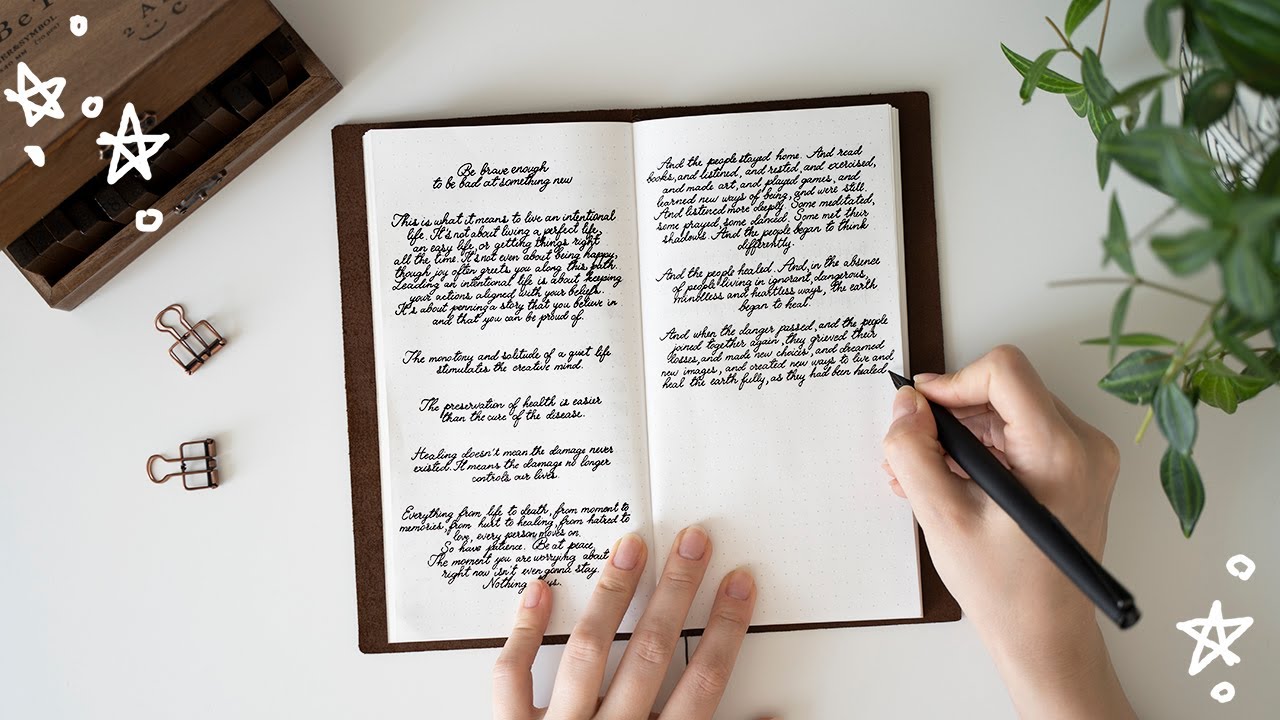 BeT
ER&SYMBOL
2 A
C
Be brave enough
to be bad at something new
This is what it means to live an intentional
life. It's not about living a perfect life,
an easy life, or getting things right
all the time. It's not even about being happy,
though joy often greets you along this path.
Leading an intentional life is about keeping
your actions aligned with your beliefs.
It's about penning a story that you believe in
and that you can be proud of.
The monotony and solitude of a quiet life
stimulates the creative mind.
The preservation of health is easier
than the cure of the disease.
Healing doesn't mean the damage never
existed. It means the damage no longer
controls our lives.
Everything from life to death, from moment to
memories, from hurt to healing, from hatred to
love, every person moves on.
So have patience. Be at peace,
The moment you are worrying about
right now isn't even gonna stay.
Nothing
And the people stayed home. And read
books, and listened, and rested, and exercised,
and made art, and played games, and
learned new ways of being, and were still.
And listened more deeply. Some meditated,
some prayed some danced. Some met their
shadows. And the people began to think
differently.
And the people healed. And, in the absence
of people living in ignorant, dangerous,
mindless and heartless ways, the earth
began to heal.
And when the danger passed, and the people
joined together again, they grieved their
losses, and made new choices, and dreamed
new images, and created new ways to live and
heal the earth fully, as they had been healed